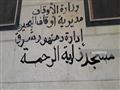 وزارة الأوقاف
مديرية أوقاف البحيرة
إدارة دمنهور شرق
مسجد زاوية الرحمة